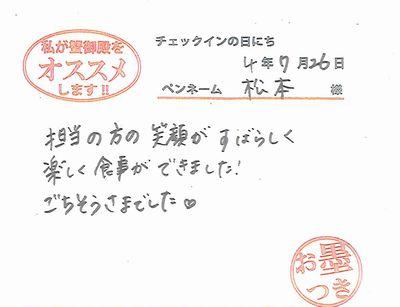 私が蟹御殿を
オススメ
します!!
チェックインの日にち
4年7月26日
ペンネーム 松本 様
担当の方の笑顔がすばらしく
楽しく食事ができました!
ごちそうさまでした♡
お墨
つき